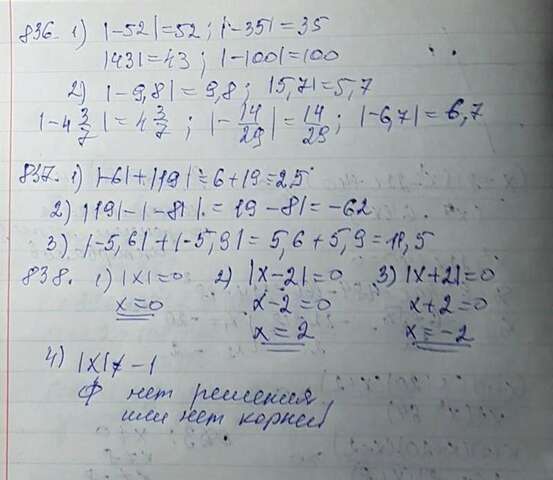 836. 1) |-52|=52; |-35|=35
|43|=43; |-100|=100
2) |-9,8|=9,8; |5,7|=5,7
|-4 3/7|=4 3/7; |-14/29|=14/29; |-6,7|=6,7
837. 1) |-6|+|19|=6+19=25
2) |19|-|-81|=19-81=-62
3) |-5,6|+|-5,9|=5,6+5,9=11,5
838. 1) |x|=0 2) |x-2|=0 3) |x+2|=0
x=0 x-2=0 x+2=0
x=2 x=-2
4) |x|≠-1
ф нет решения,
или нет корней